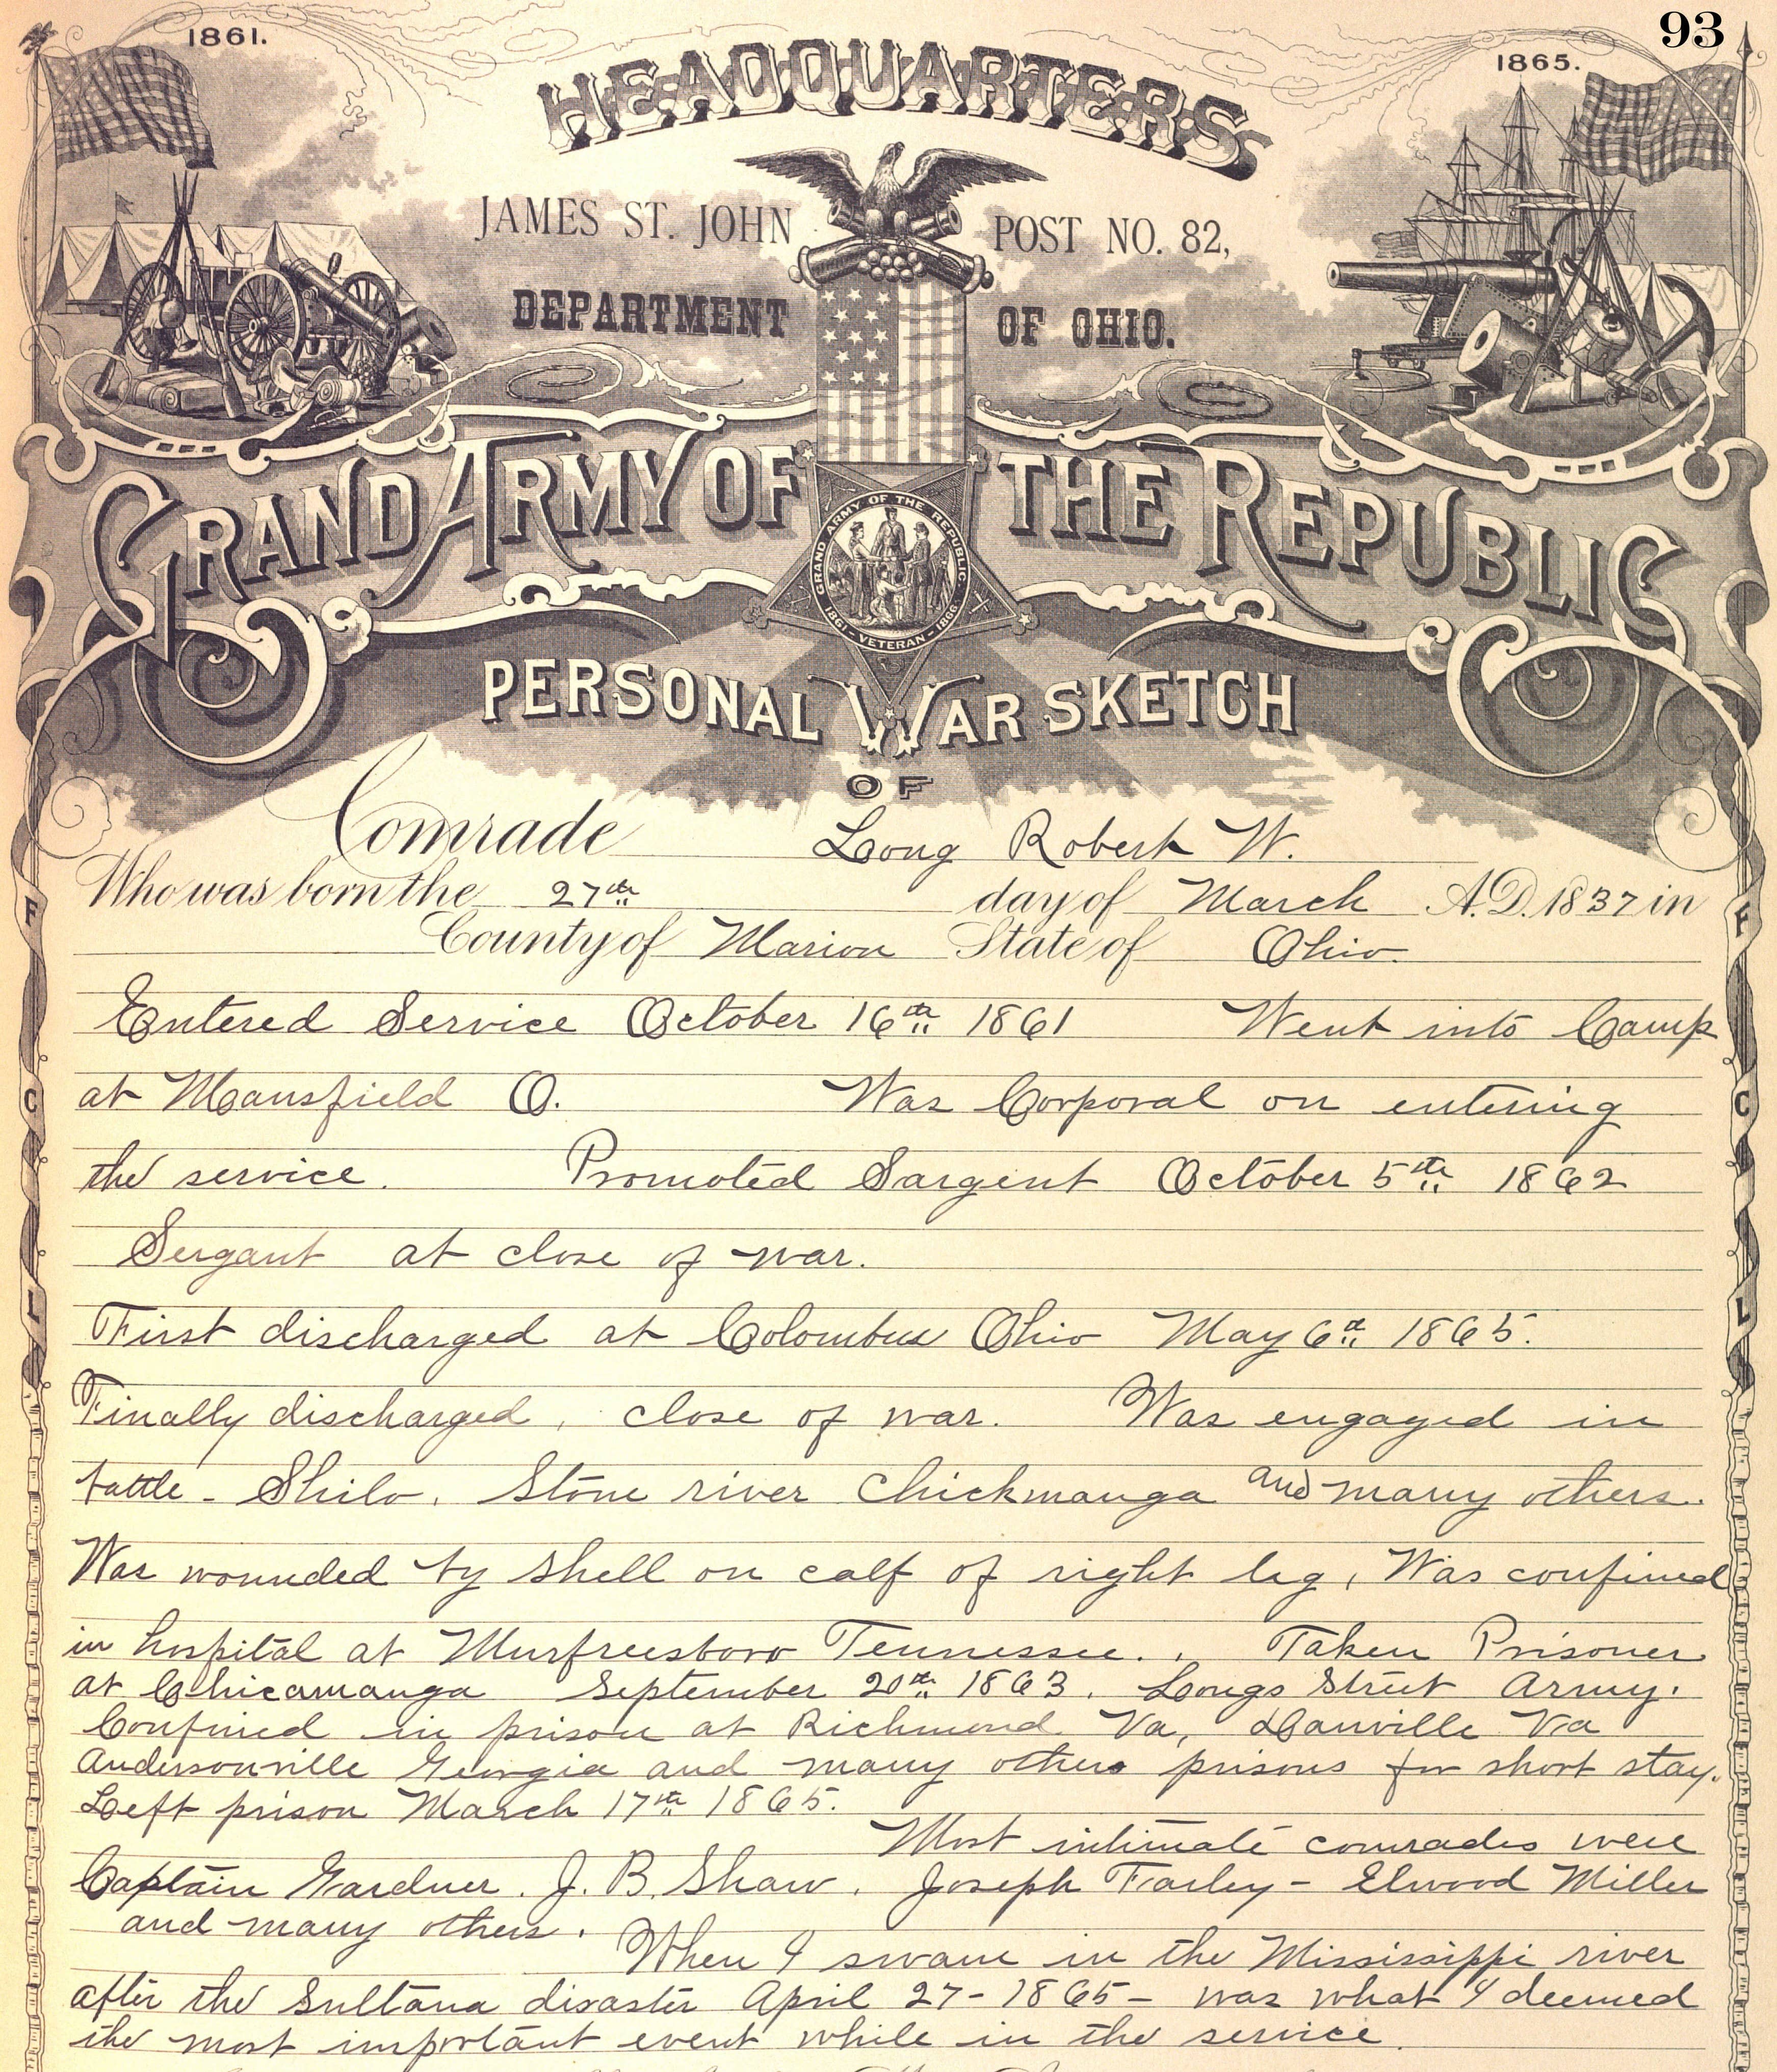 93
1861.
1865.
HEADQUARTERS
JAMES ST. JOHN POST NO. 82,
DEPARTMENT OF OHIO.
GRAND ARMY OF THE REPUBLIC
GRAND ARMY OF THE REPUBLIC
1861 - VETERAN - 1866
PERSONAL WAR SKETCH
OF
Comrade Long Robert W.
Who was born the 27th day of March A.D. 1837 in
County of Marion State of Ohio.
Entered Service October 16th 1861 Went into Camp
at Mansfield O. Was Corporal on entering
the service. Promoted Sargent October 5th 1862
Sergant at close of war.
First discharged at Colombus Ohio May 6th 1865.
Finally discharged, close of war. Was engaged in
battle - Shilo. Stone river Chickmauga and many others.
Was wounded by shell on calf of right leg, Was confined
in hospital at Murfreesboro Tennessee. Taken Prisoner
at Chicamauga September 20th 1863. Longs Street Army.
Confined in prison at Richmond Va, Danville Va
Andersonville Georgia and many others prisons for short stay.
Left prison March 17th 1865.
Most intimate comrades were
Captain Gardner. J. B. Shaw. Joseph Farley - Elwood Miller
and many others.
When I swam in the Mississippi river
after the Sultana disaster April 27 - 1865 - was what I deemed
the most important event while in the service.
F
C
L
F
C
L